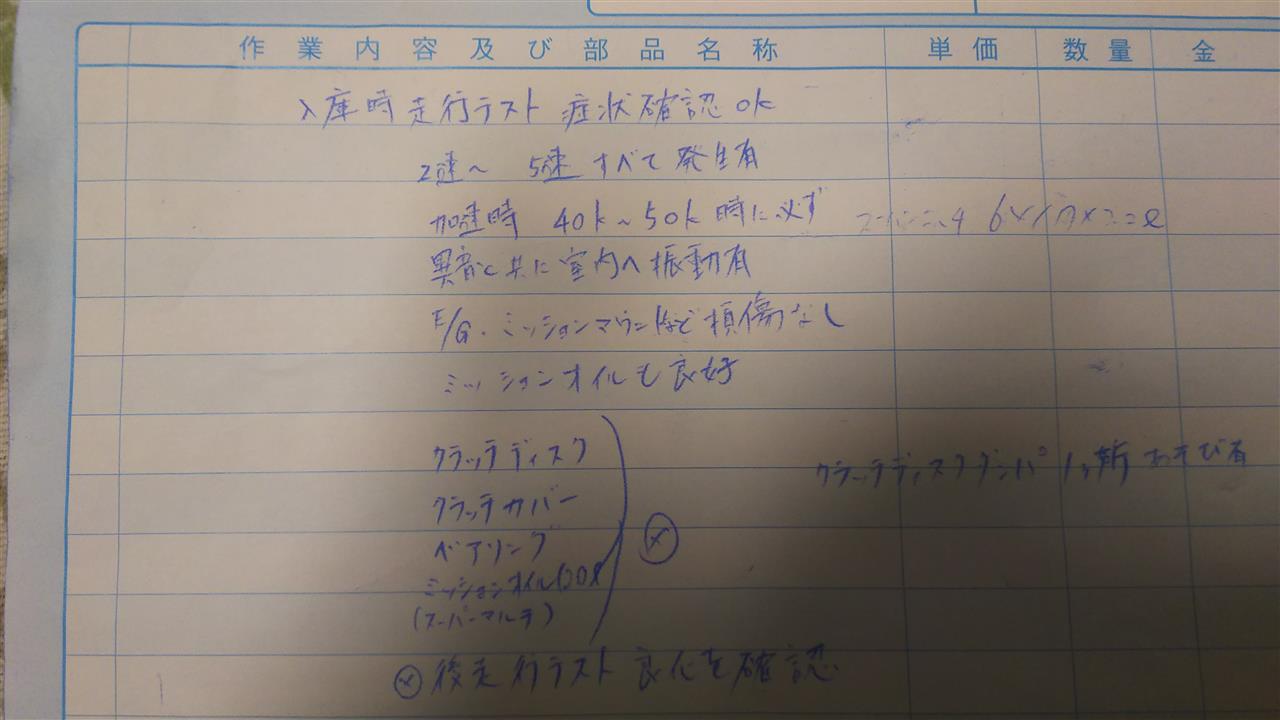 作業内容及び部品名称 単価 数量 金
入庫時走行テスト 症状確認 ok
2速〜 5速 すべて発生有
加速時 40k〜50k時に必ず
異音と共に室内へ振動有
E/G・ミッションマウントなど損傷なし
ミッションオイルも良好
クラッチディスク
クラッチディスクダンパ 1ヶ所 あそび有
クラッチカバー
ベアリング
ミッションオイル
(スーパーマルチ)
後走行テスト 良化を確認